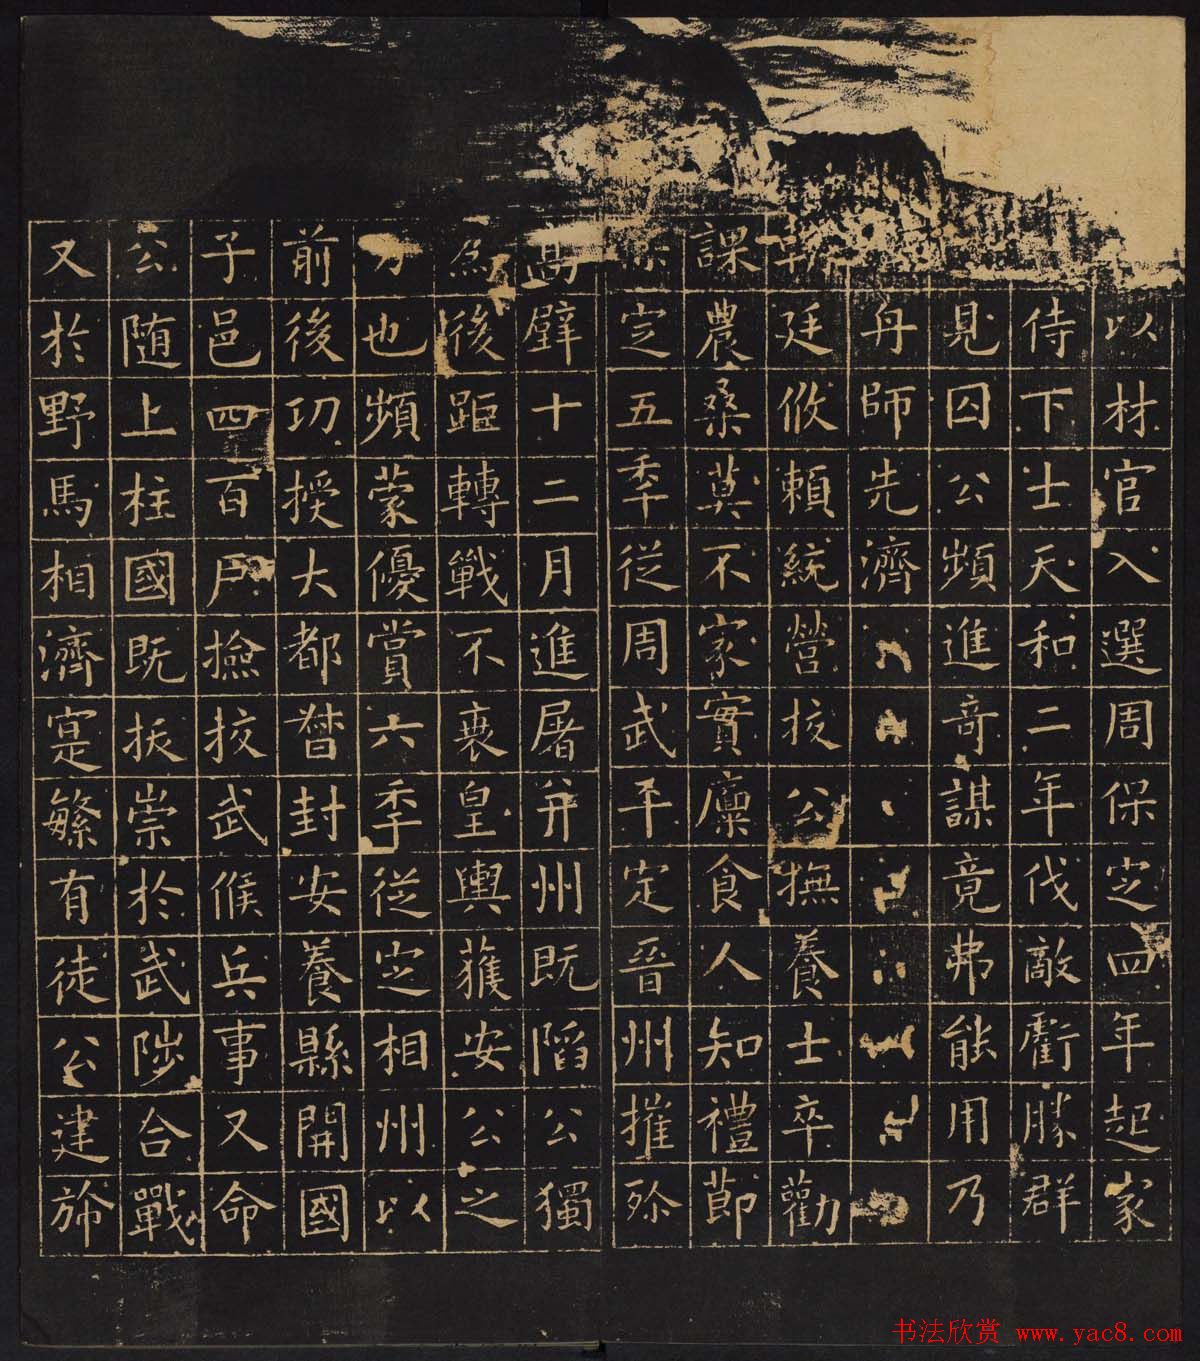 以材官入選周保㝎四年起家
侍下士天和二年伐敵虧勝群
見囚公頻進竒謀竟弗能用乃
舟師先濟
朝廷攸賴統營挍公撫養士卒勸
課農桑莫不家實廩食人知禮節
㝎五秊從周武平定晉州摧殄
高壁十二月進屠并州既䧟公獨
為後距轉戰不衰皇輿獲安公之
力也頻蒙優賞六秊從㝎相州以
前後功授大都督封安養縣開國
子邑四百戶撿挍武候兵事又命
公随上柱國既振崇於武陟合戰
又於野馬相濟寔繁有徒公建斾
书法欣赏 www.yac8.com